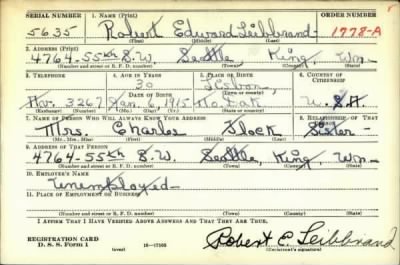 SERIAL NUMBER 1. NAME (Print) ORDER NUMBER
5635 Robert Edward Leibbrand 1778-A
(First) (Middle) (Last)
2. ADDRESS (Print)
4764-55th S.W. Seattle King, Wn-
(Number and street or R. F. D. number) (Town) (County) (State)
3. TELEPHONE 4. AGE IN YEARS 5. PLACE OF BIRTH 6. COUNTRY OF CITIZENSHIP
30 Lisbon,
DATE OF BIRTH
3267 Jan. 1915 No. Dak U.S.A.
(Exchange) (Number) (Mo.) (Day) (Yr.) (State or country)
7. NAME OF PERSON WHO WILL ALWAYS KNOW YOUR ADDRESS 8. RELATIONSHIP OF THAT PERSON
Mrs. Charles Flock Sister-
(Mr., Mrs., Miss) (First) (Middle) (Last)
9. ADDRESS OF THAT PERSON
4764-55th S.W. Seattle, King, Wn-
(Number and street or R. F. D. number) (Town) (County) (State)
10. EMPLOYER'S NAME
Unemployed-
11. PLACE OF EMPLOYMENT OR BUSINESS
(Number and street or R. F. D. number) (Town) (County) (State)
I AFFIRM THAT I HAVE VERIFIED ABOVE ANSWERS AND THAT THEY ARE TRUE.
REGISTRATION CARD
D. S. S. Form 1 (over) 16-17105 Robert E. Leibbrand
(Registrant's signature)